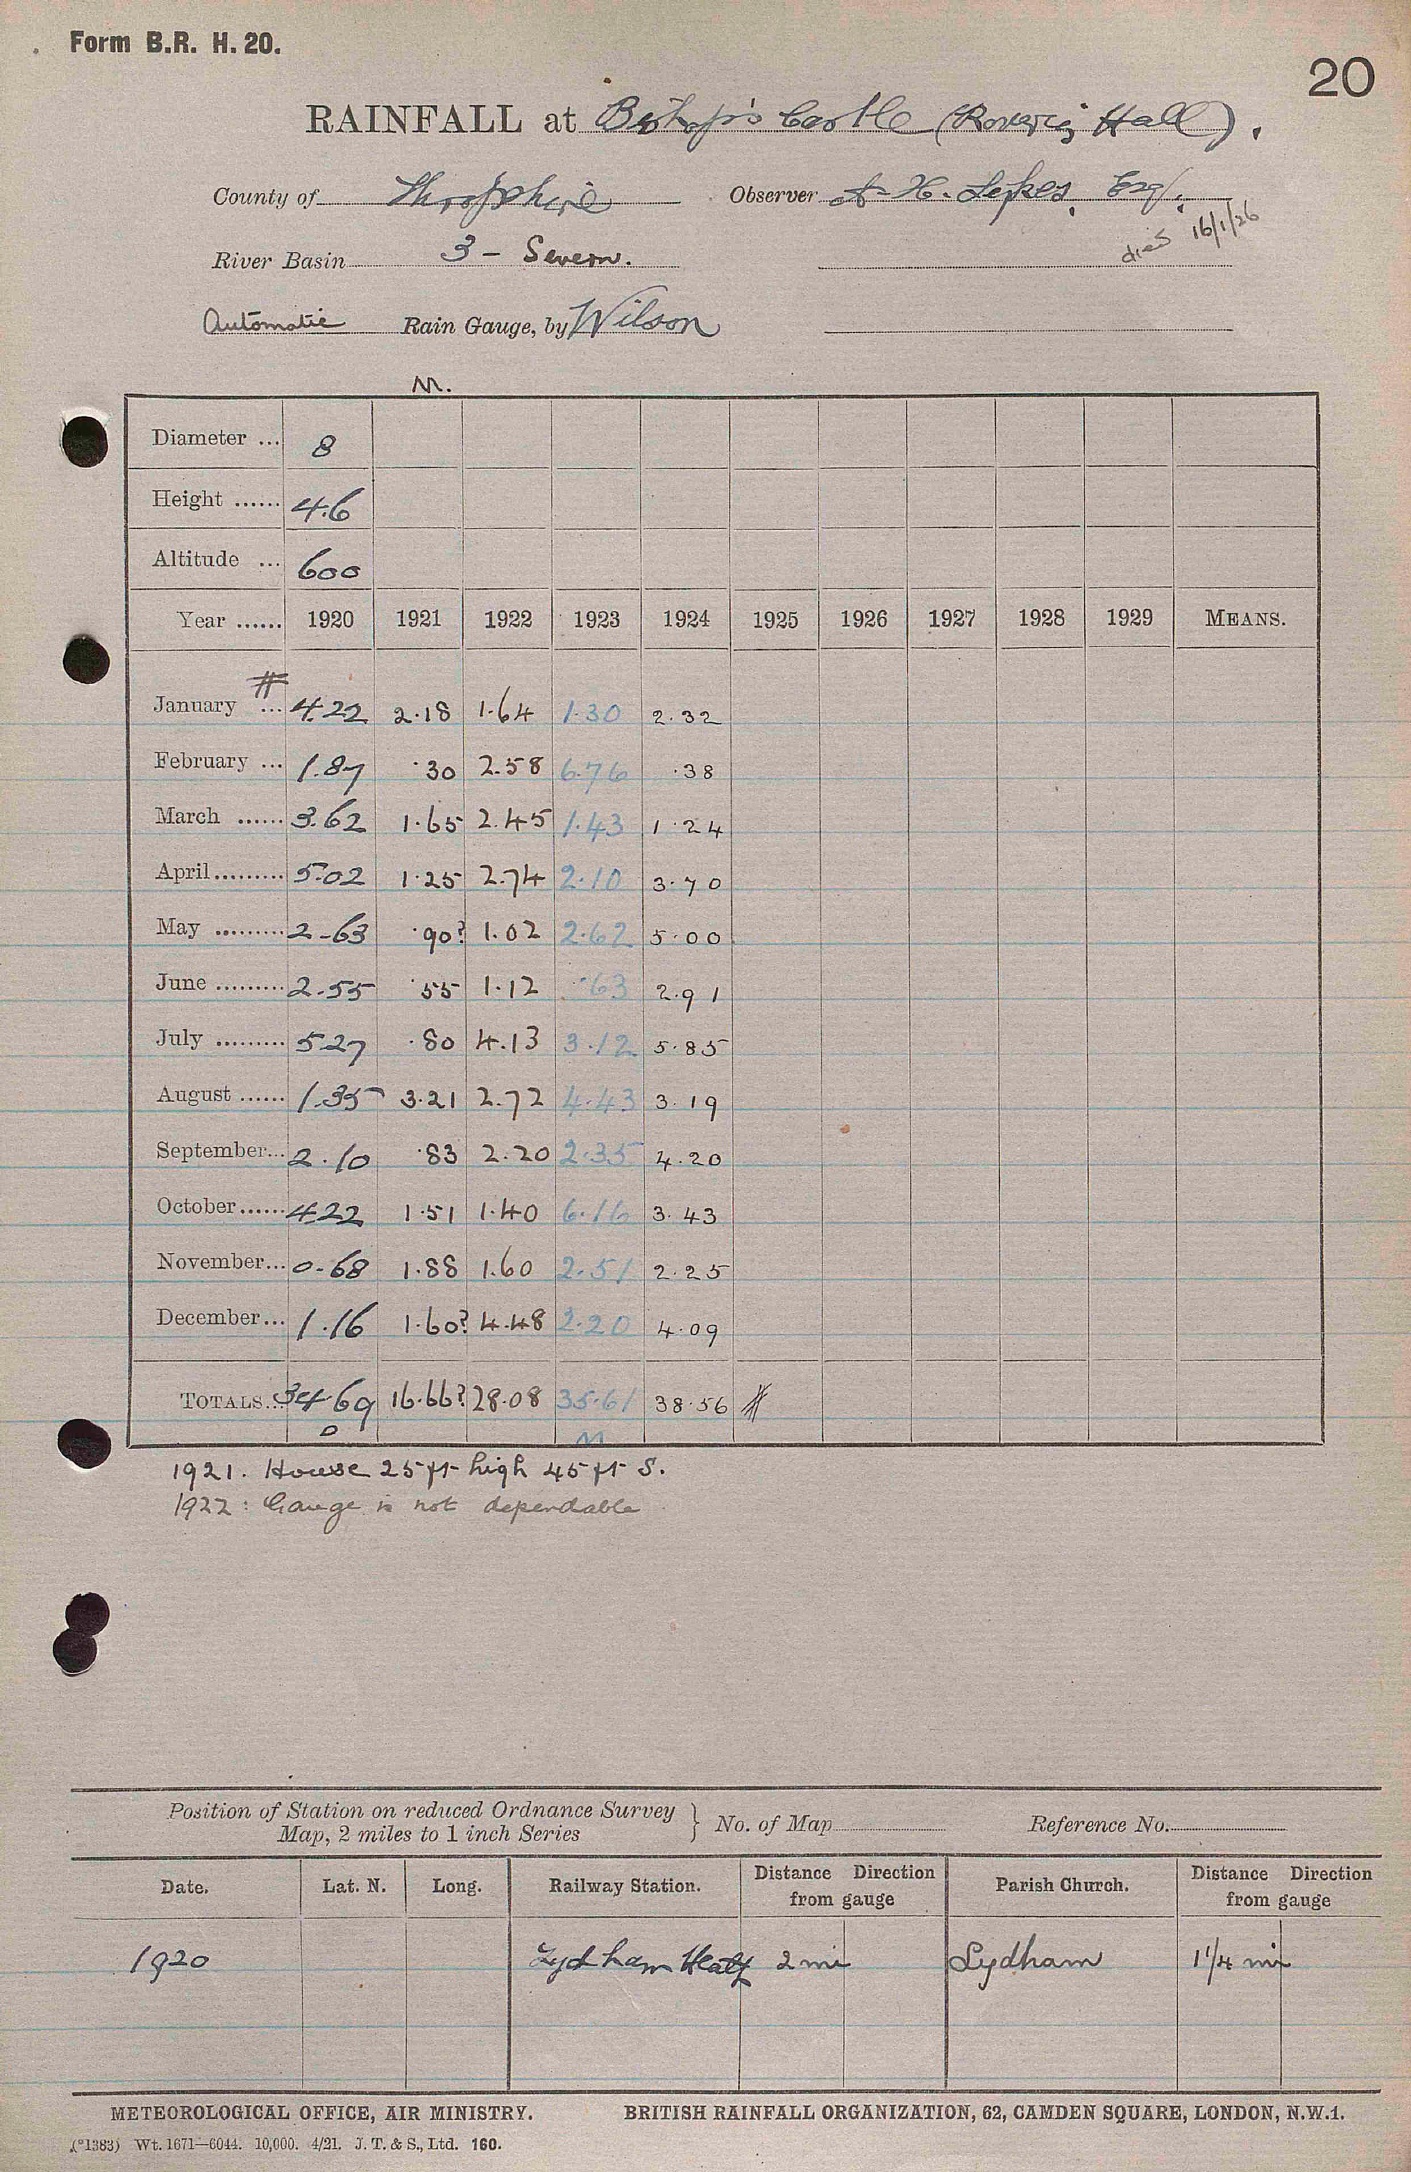 Form B.R. H. 20.
20
RAINFALL at Bishop's Castle (Roveries Hall).
County of Shropshire Observer A. H. Sykes, Esq.
died 16/1/26
River Basin 3 - Severn.
Automatic Rain Gauge, by Wilson
M.
Diameter ... 8
Height ...... 4.6
Altitude ... 600
Year ...... 1920 1921 1922 1923 1924 1925 1926 1927 1928 1929 MEANS.
January ... 4.22 2.18 1.64 1.30 2.32
February ... 1.87 .30 2.58 6.76 .38
March ...... 3.62 1.65 2.45 1.43 1.24
April......... 5.02 1.25 2.74 2.10 3.70
May ......... 2.63 .90? 1.02 2.62 5.00
June ......... 2.55 .55 1.12 .63 2.91
July ......... 5.27 .80 4.13 3.12 5.85
August ...... 1.35 3.21 2.72 4.43 3.19
September... 2.10 .83 2.20 2.35 4.20
October...... 4.22 1.51 1.40 6.16 3.43
November... 0.68 1.88 1.60 2.51 2.25
December... 1.16 1.60? 4.48 2.20 4.09
TOTALS... 34.69 16.66? 28.08 35.61 38.56
M
1921. House 25 ft high 45 ft S.
1922: Gauge is not dependable
Position of Station on reduced Ordnance Survey Map, 2 miles to 1 inch Series } No. of Map Reference No.
Date. Lat. N. Long. Railway Station. Distance Direction from gauge Parish Church. Distance Direction from gauge
1920 Lydham Heath 2 mi Lydham 1 1/4 mi
METEOROLOGICAL OFFICE, AIR MINISTRY. BRITISH RAINFALL ORGANIZATION, 62, CAMDEN SQUARE, LONDON, N.W.1.
(*1383) Wt. 1671—6044. 10,000. 4/21. J. T. & S., Ltd. 160.